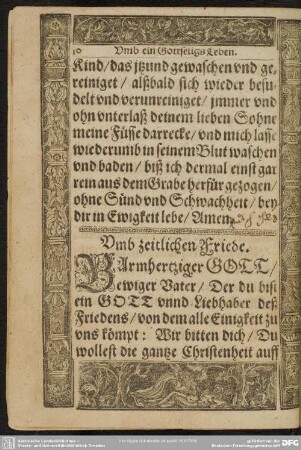 Vmb ein Gottseligs Leben.
Kind/ das jtzund gewaschen vnd ge-
reiniget/ alßbald sich wieder besu-
delt vnd verunreiniget/ jmmer vnd
ohn vnterlaß deinem lieben Sohne
meine Füsse darrecke/ vnd mich lasse
wiederumb in seinem Blut waschen
vnd baden/ biß ich dermal einst gar
rein aus dem Grabe herfür gezogen/
ohne Sünd vnd Schwachheit/ bey
dir in Ewigkeit lebe/ Amen.
Vmb zeitlichen Friede.
BArmhertziger GOTT/
ewiger Vater/ Der du bist
ein GOTT vnnd Liebhaber deß
Friedens/ von dem alle Einigkeit zu
vns kömpt: Wir bitten dich/ Du
wollest die gantze Christenheit auff
DFG